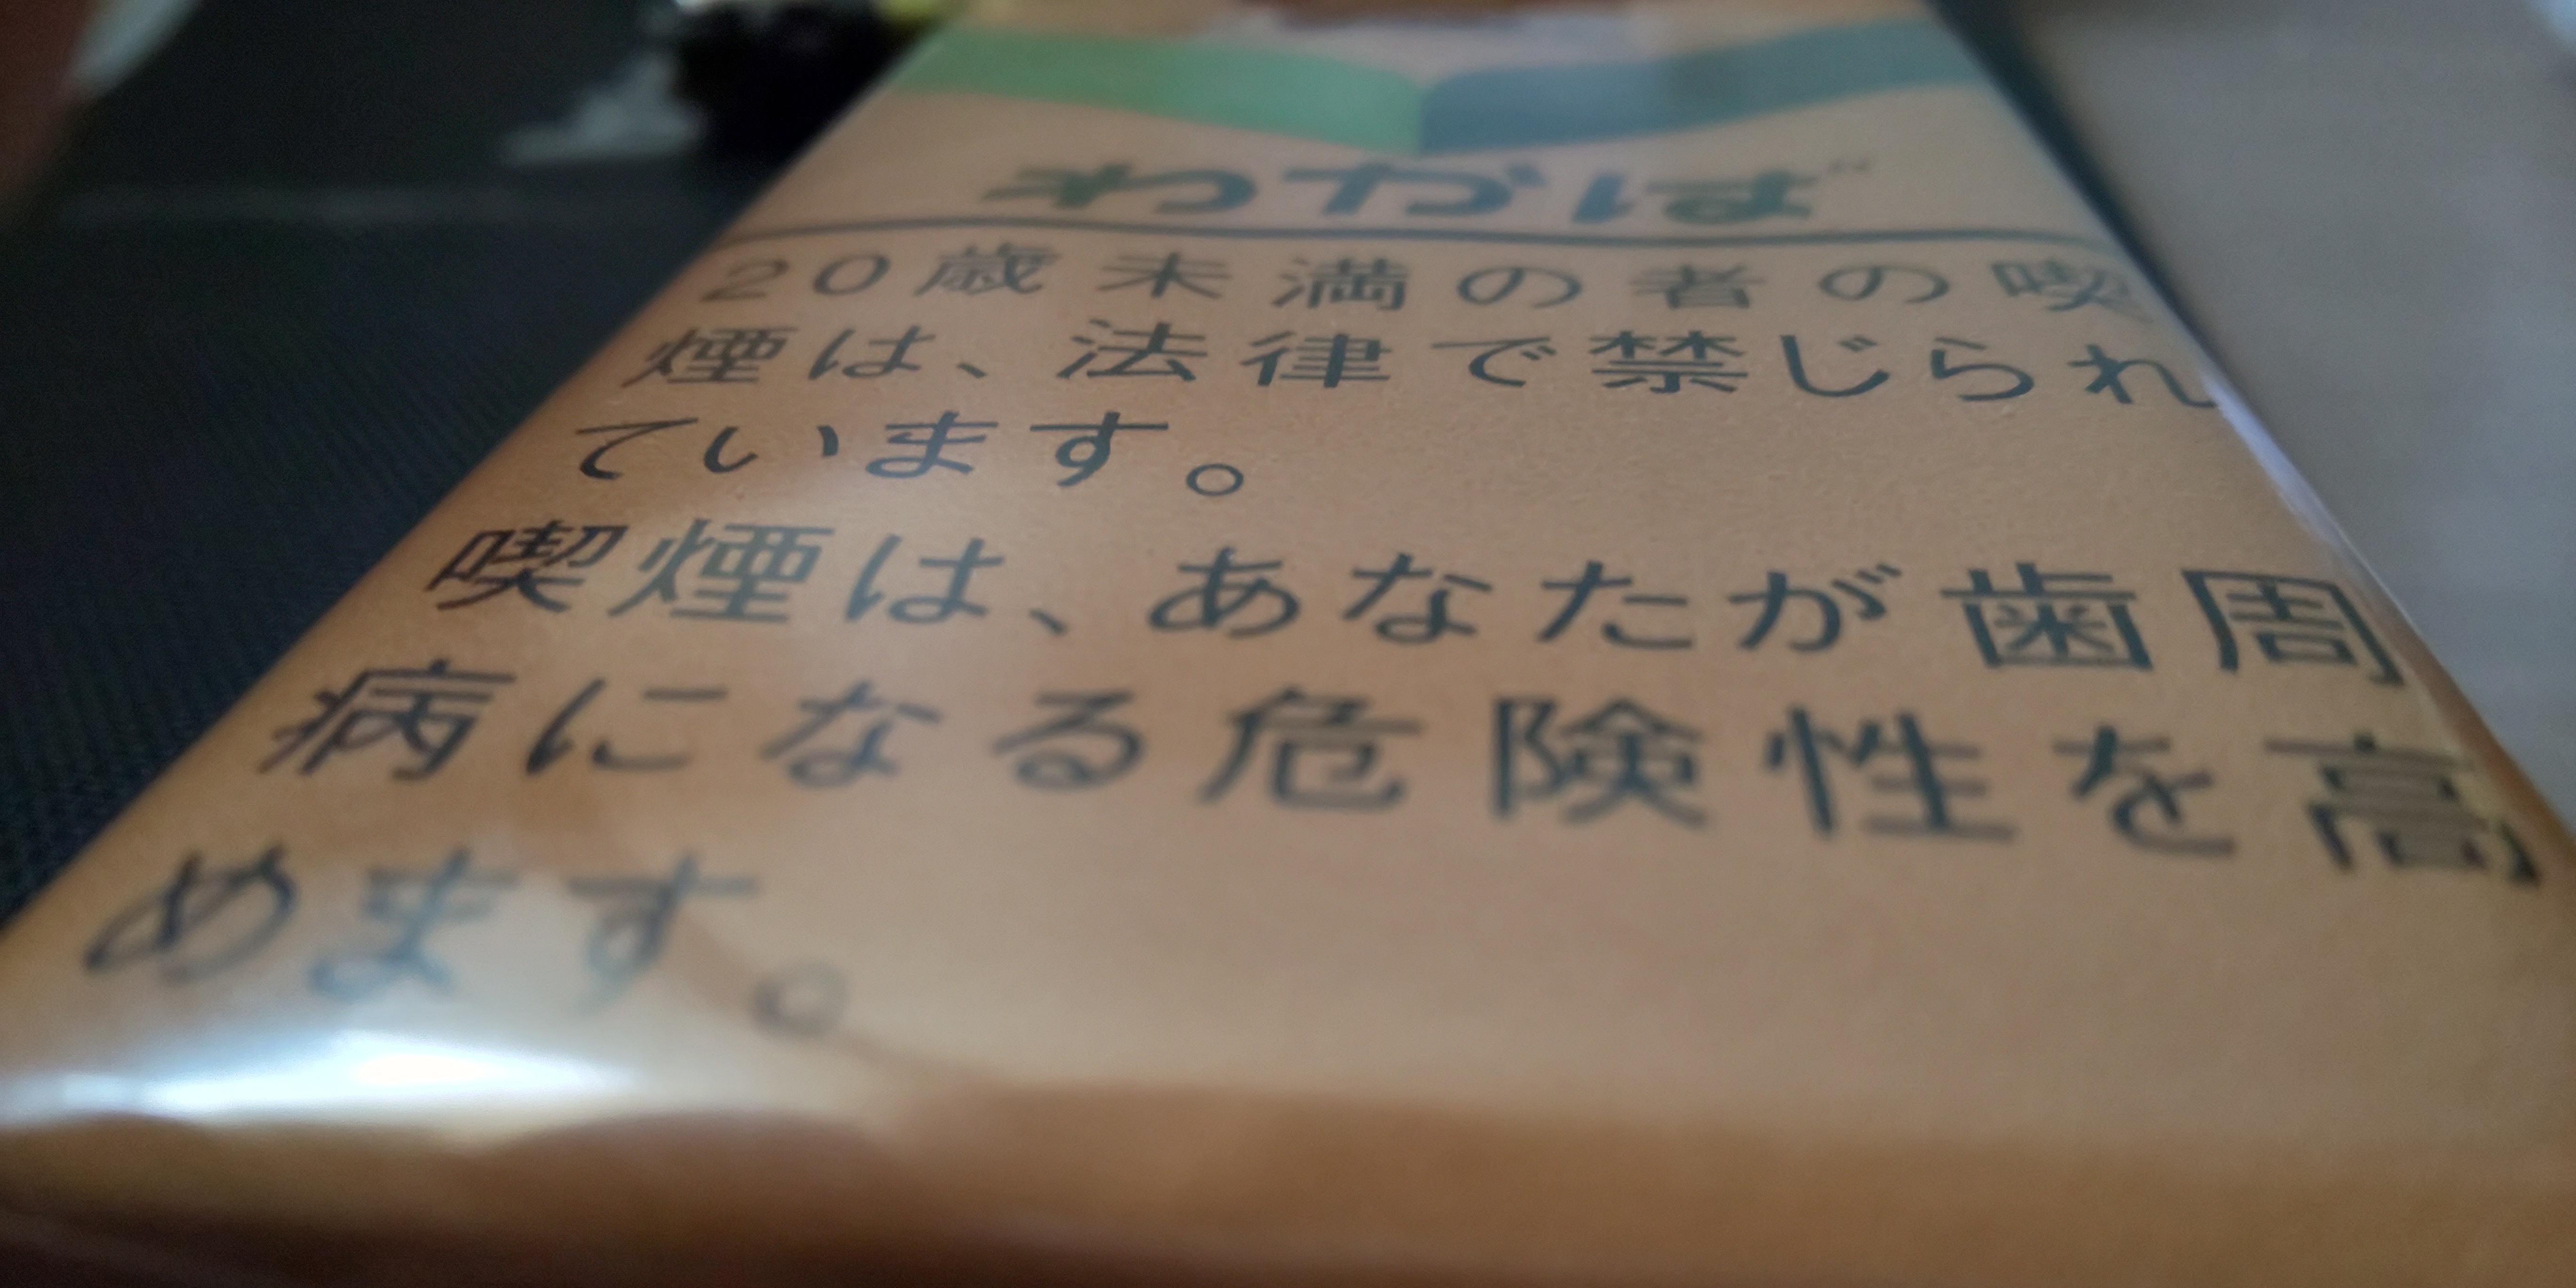 わかば
20歳未満の者の喫
煙は、法律で禁じられ
ています。
喫煙は、あなたが歯周
病になる危険性を高
めます。